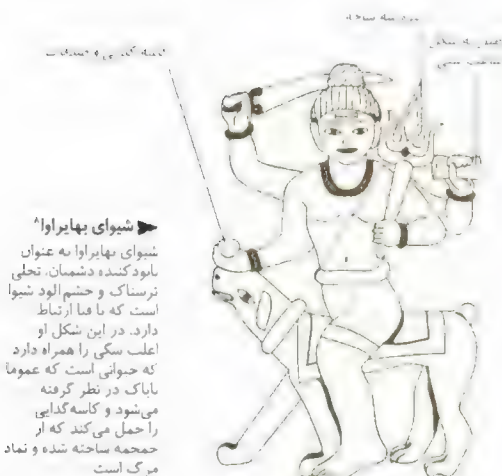 شیوای بهایراوا⁸
شیوای بهایراوا به عنوان
نابودکننده دشمنان، تجلی
ترسناک و خشم‌آلود شیوا
است که با فنا ارتباط
دارد. در این شکل او
اغلب سگی را همراه دارد
که حیوانی است که عموما
ناپاک در نظر گرفته
می‌شود و کاسه گدایی
را حمل می‌کند که از
جمجمه ساخته شده و نماد
مرگ است